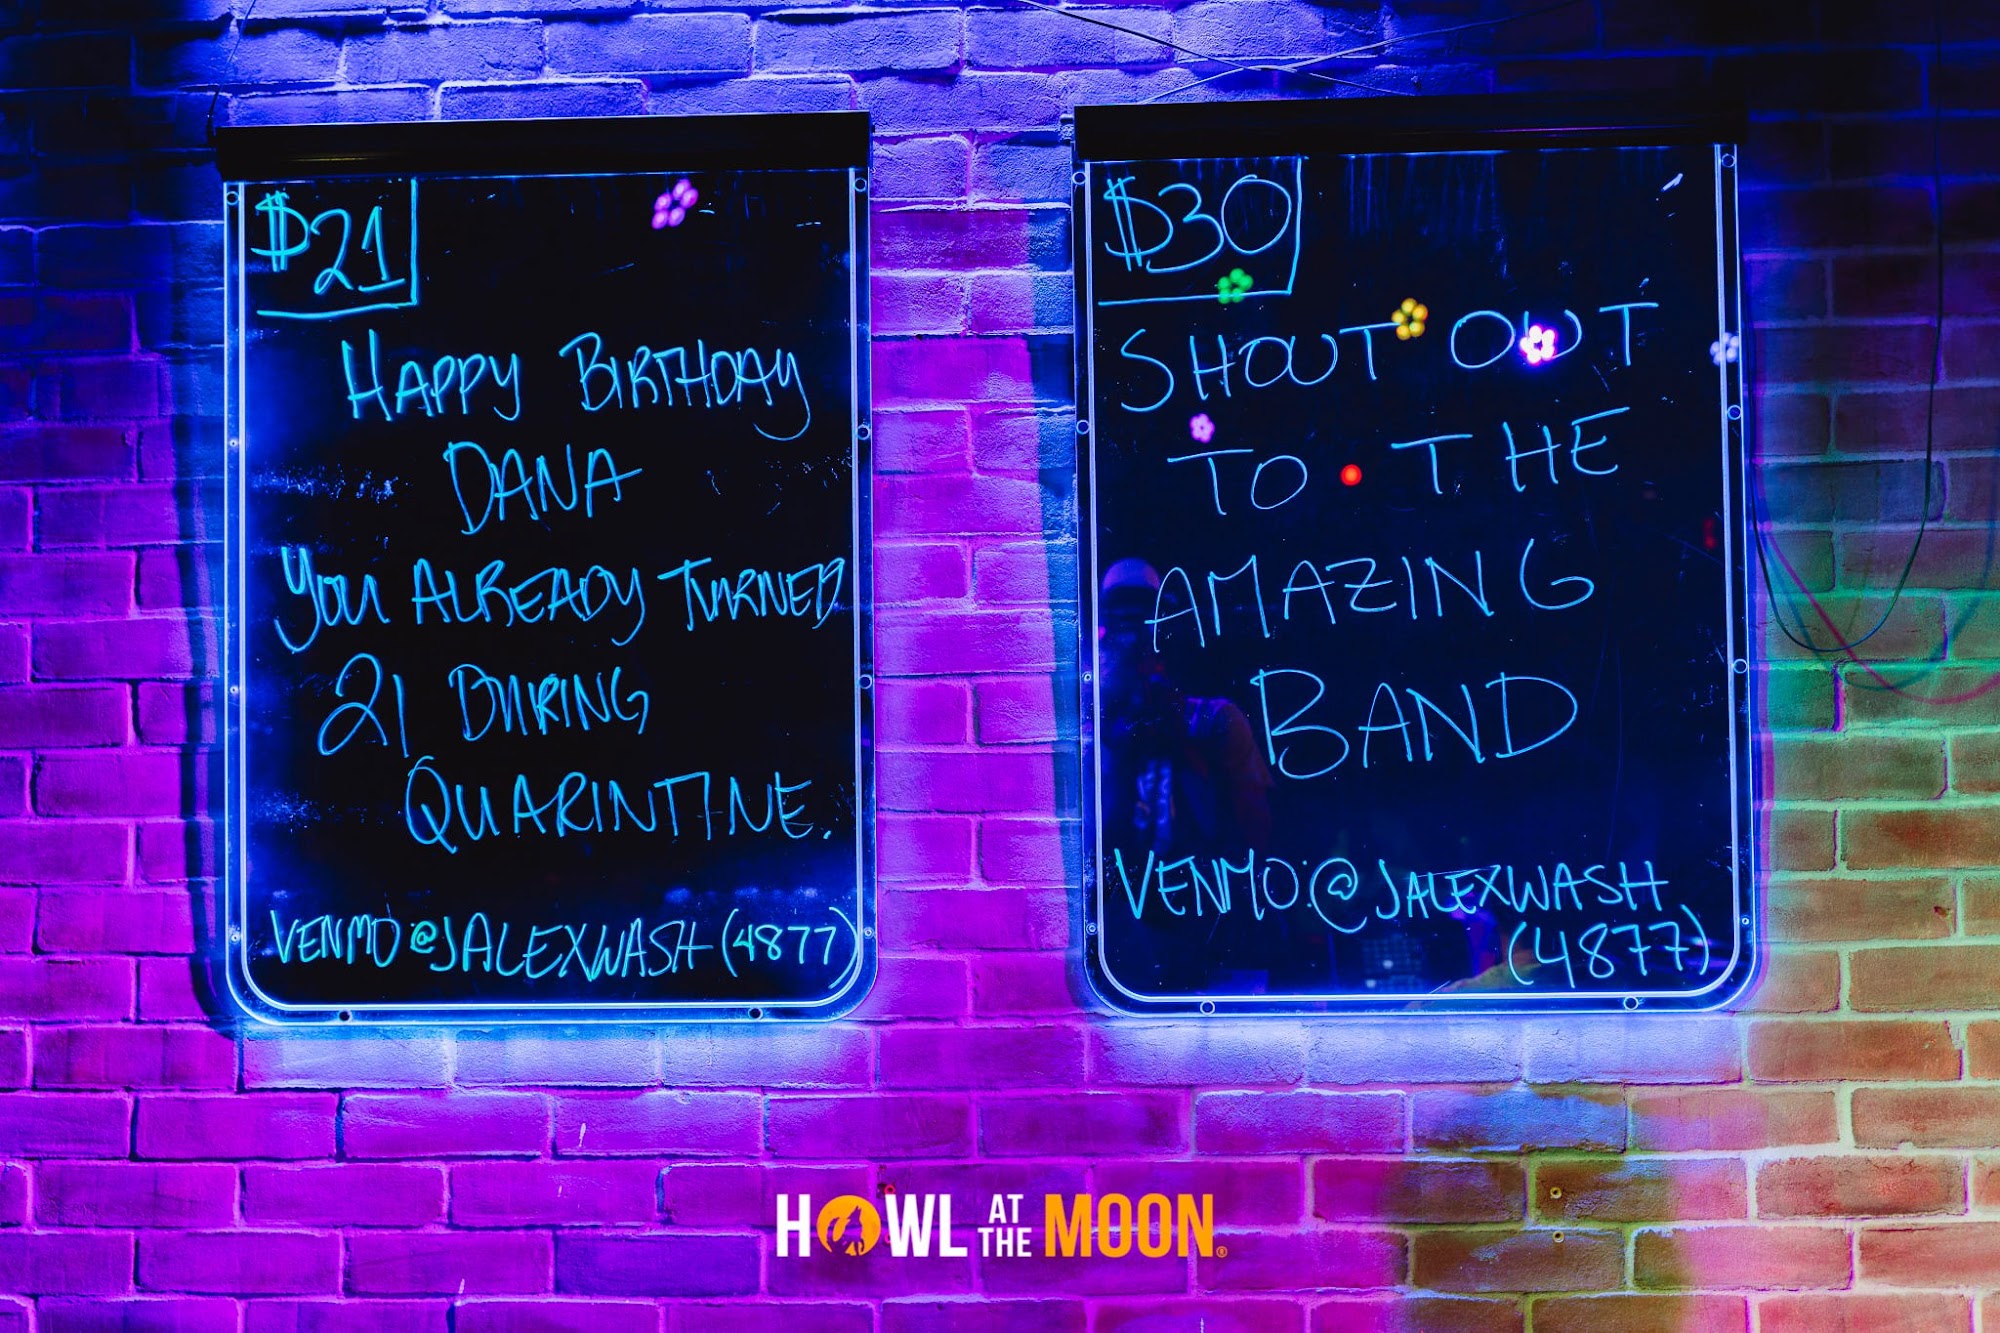 $21
HAPPY BIRTHDAY
DANA
YOU ALREADY TURNED
21 DURING
QUARINTINE.
VENMO @JALEXWASH (4877)
$30
SHOUT OUT
TO THE
AMAZING
BAND
VENMO: @JALEXWASH
(4877)
HOWL AT THE MOON®